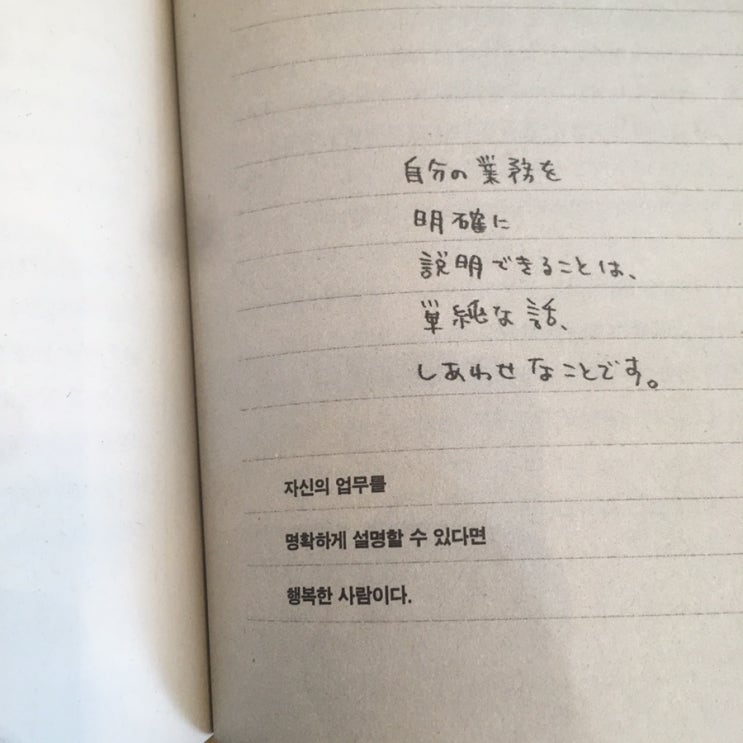 自分の業務を
明確に
説明できることは、
単純な話、
しあわせなことです。
자신의 업무를
명확하게 설명할 수 있다면
행복한 사람이다.